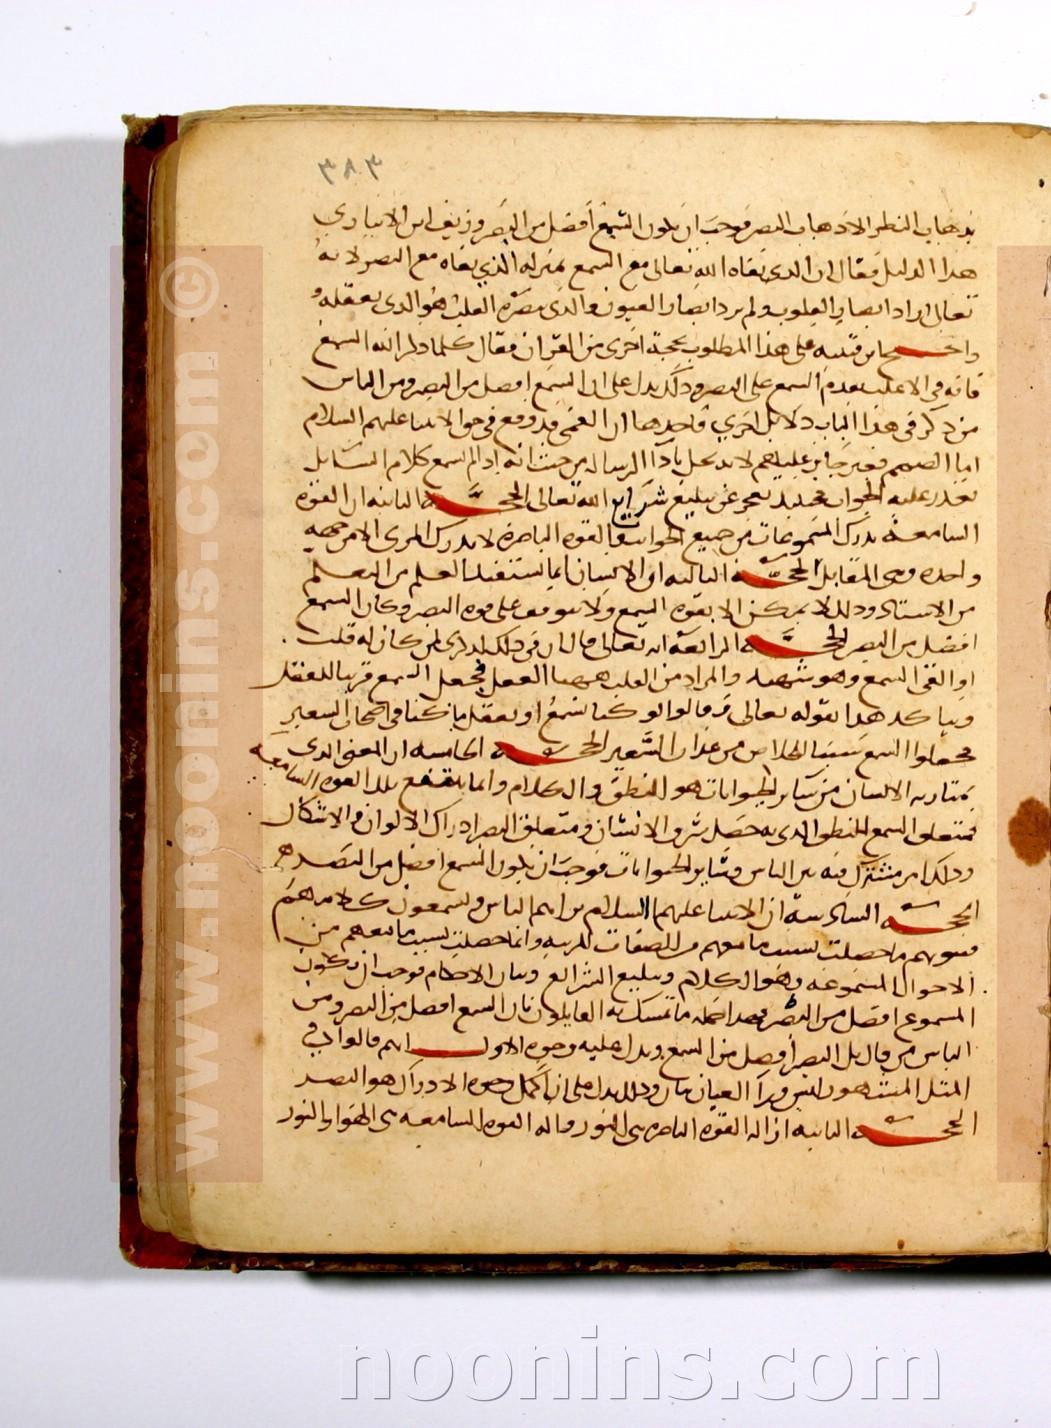 ٣٨٣
بذهاب النظر الا ذهاب البصر فوجب ان يكون السمع افضل من البصر وزيف ابن الانباري
هذا الدليل فقال ان الذي نفاه الله تعالى مع السمع بمنزله الذي نفاه مع البصر لانه
تعالى اراد ابصار القلوب ولم يرد ابصار العيون والذي يبصره القلب هو الذي يعقله
واحتج ابن قتيبه على هذا المطلوب بحجة اخرى من القران فقال كلما ذكر الله السمع
فانه في الاغلب يقدم السمع على البصر وذلك يدل على ان السمع افضل من البصر ومن الناس
من ذكر في هذا الباب دلائل اخرى فاحدها ان العمى قد وقع في حق الانبيا عليهم السلام
اما الصمم فغير جايز عليهم لانه يخل باداء الرساله من حيث انه اذا لم يسمع كلام السايل
تعذر عليه الجواب فحينئذ يعجز عن تبليغ شرايع الله تعالى الحجة الثانيه ان القوة
السامعة تدرك المسموعات من جميع الجوانب والقوه الباصرة لا تدرك المرى الا من جهه
واحده وهي المقابل الحجة الثالثه ان الانسان انما يستفيد العلم من التعلم
من الاستاد وذلك لا يمكن الا بقوه السمع ولا يتوقف على قوه البصر وكان السمع
افضل من البصر الحجة الرابعة انه تعالى قال ان في ذلك لذكرى لمن كان له قلب
او القى السمع وهو شهيد والمراد من القلب ههنا العقل فجعل السمع قرينا للعقل
ويتاكد هذا بقوله تعالى وقالوا لو كنا نسمع او نعقل ما كنا في اصحاب السعير
فجعلوا السمع سببا للخلاص من عذاب السعير الحجة الخامسه ان المعنى الذي
يمتاز به الانسان من ساير الحيوانات هو النطق والكلام وانما ينتفع بذلك القوه السامعه
فمتعلق السمع النطق الذي به حصل شرف الانسان ومتعلق البصر ادراك الالوان والاشكال
وذلك امر مشترك فيه بين الناس وساير الحيوانات فوجب ان يكون السمع افضل من البصر
الحجة السادسة ان الانبيا عليهم السلام يراهم الناس ويسمعون كلامهم
فنبوتهم ما حصلت بسبب ما معهم من الصفات المريه وانما حصلت بسبب ما معهم من
الاحوال المسموعه وهو الكلام وتبليغ الشرائع وبيان الاحكام فوجب ان يكون
المسموع افضل من البصر فهذا جملة ما تمسك به القايلون بان السمع افضل من البصر ومن
الناس من قال بل البصر افضل من السمع ويدل عليه وجوه الاول انهم قالوا في
المثل المشهور ليس وراء العيان بيان وذلك يدل على ان اكمل وجوه الادراك هو البصر
الحجة الثانيه ان اله القوة الباصرة هي النور واله القوه السامعه هي الهوا والنور
noonins.com
www.noonins.com ©